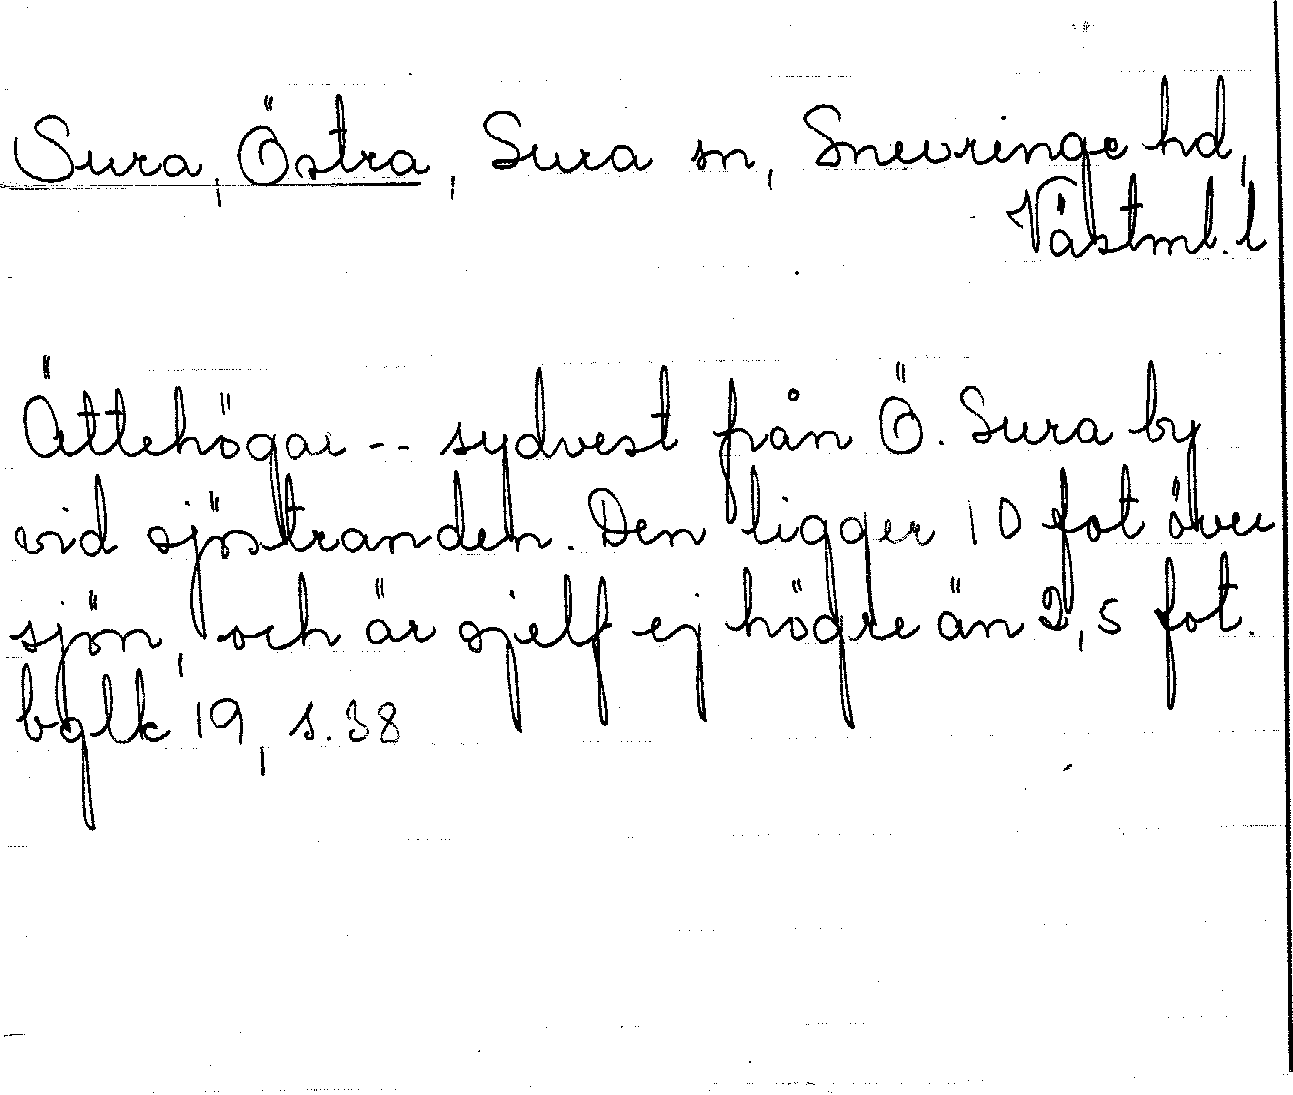 Sura, Östra, Sura sn, Snevringe hd,
Västml. l
Ättehögar -- sydvest från Ö. Sura by
vid sjöstranden. Den ligger 10 fot över
sjön, och är sjelf ej högre än 2,5 fot.
bglk 19, s. 38